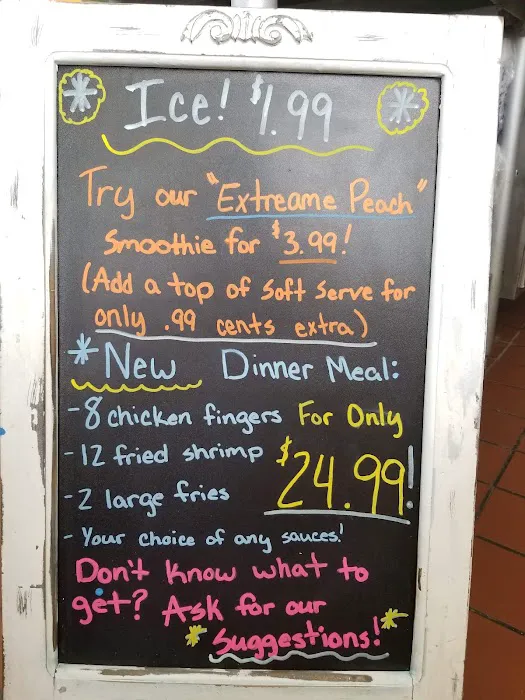 Ice! $1.99
Try our "Extreame Peach"
Smoothie for $3.99!
(Add a top of Soft Serve for
only .99 cents extra)
*New Dinner Meal:
- 8 chicken fingers For Only
- 12 fried shrimp $24.99!
- 2 large fries
- Your choice of any sauces!
Don't know what to
get? Ask for our
*Suggestions!*